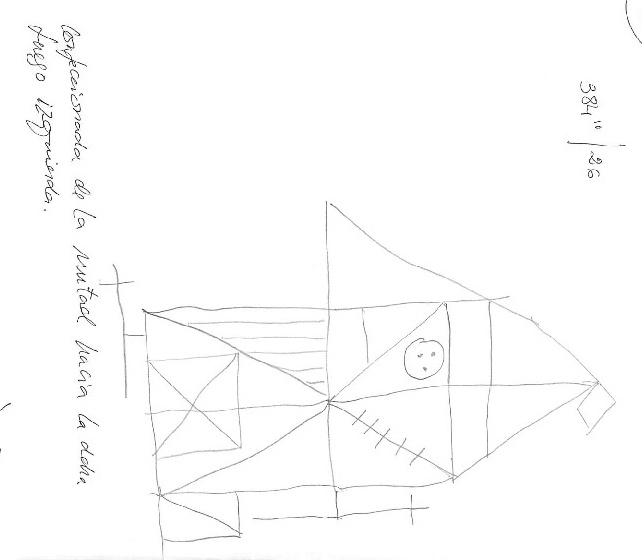 384" / 26
Confeccionada de la mitad hacia la dcha
luego izquierda.